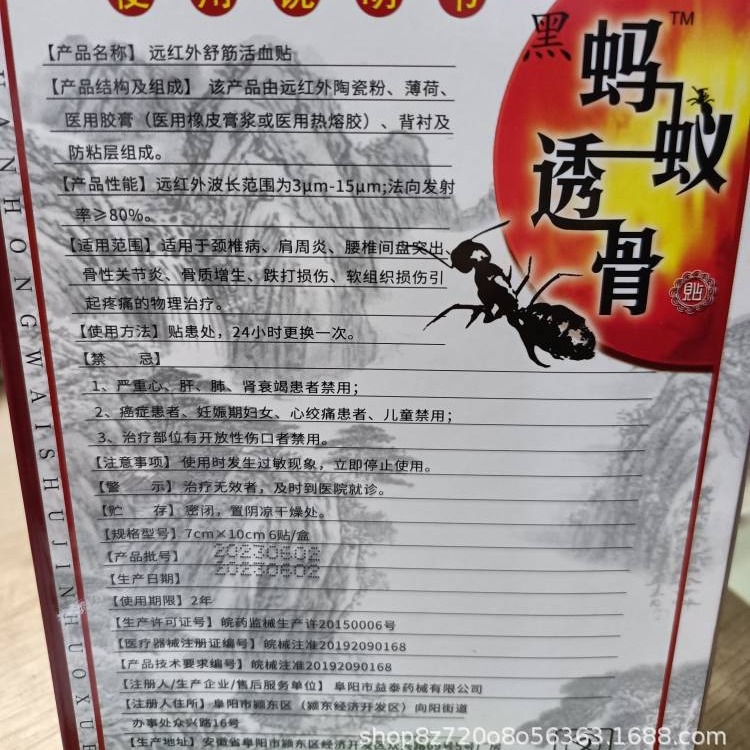 使用说明书
黑
蚂蚁
TM
透骨
貼
【产品名称】 远红外舒筋活血贴
【产品结构及组成】 该产品由远红外陶瓷粉、薄荷、
医用胶膏（医用橡皮膏浆或医用热熔胶）、背衬及
防粘层组成。
【产品性能】远红外波长范围为3μm-15μm;法向发射
率≥80%。
【适用范围】适用于颈椎病、肩周炎、腰椎间盘突出、
骨性关节炎、骨质增生、跌打损伤、软组织损伤引
起疼痛的物理治疗。
【使用方法】贴患处，24小时更换一次。
【禁 忌】
1、严重心、肝、肺、肾衰竭患者禁用；
2、癌症患者、妊娠期妇女、心绞痛患者、儿童禁用；
3、治疗部位有开放性伤口者禁用。
【注意事项】使用时发生过敏现象，立即停止使用。
【警 示】治疗无效者，及时到医院就诊。
【贮 存】密闭，置阴凉干燥处。
【规格型号】7cm×10cm 6贴/盒
【产品批号】 20230602
【生产日期】 20230602
【使用期限】2年
【生产许可证号】皖药监械生产许20150006号
【医疗器械注册证编号】皖械注准20192090168
【产品技术要求编号】皖械注准20192090168
【注册人/生产企业/售后服务单位】阜阳市益泰药械有限公司
【注册人住所】阜阳市颍东区（颍东经济开发区）向阳街道
办事处众兴路16号
【生产地址】安徽省阜阳市颍东区经济开发区
YUANHONGWAISHUJINHUOXUE
shop8z720o8o56363.1688.com